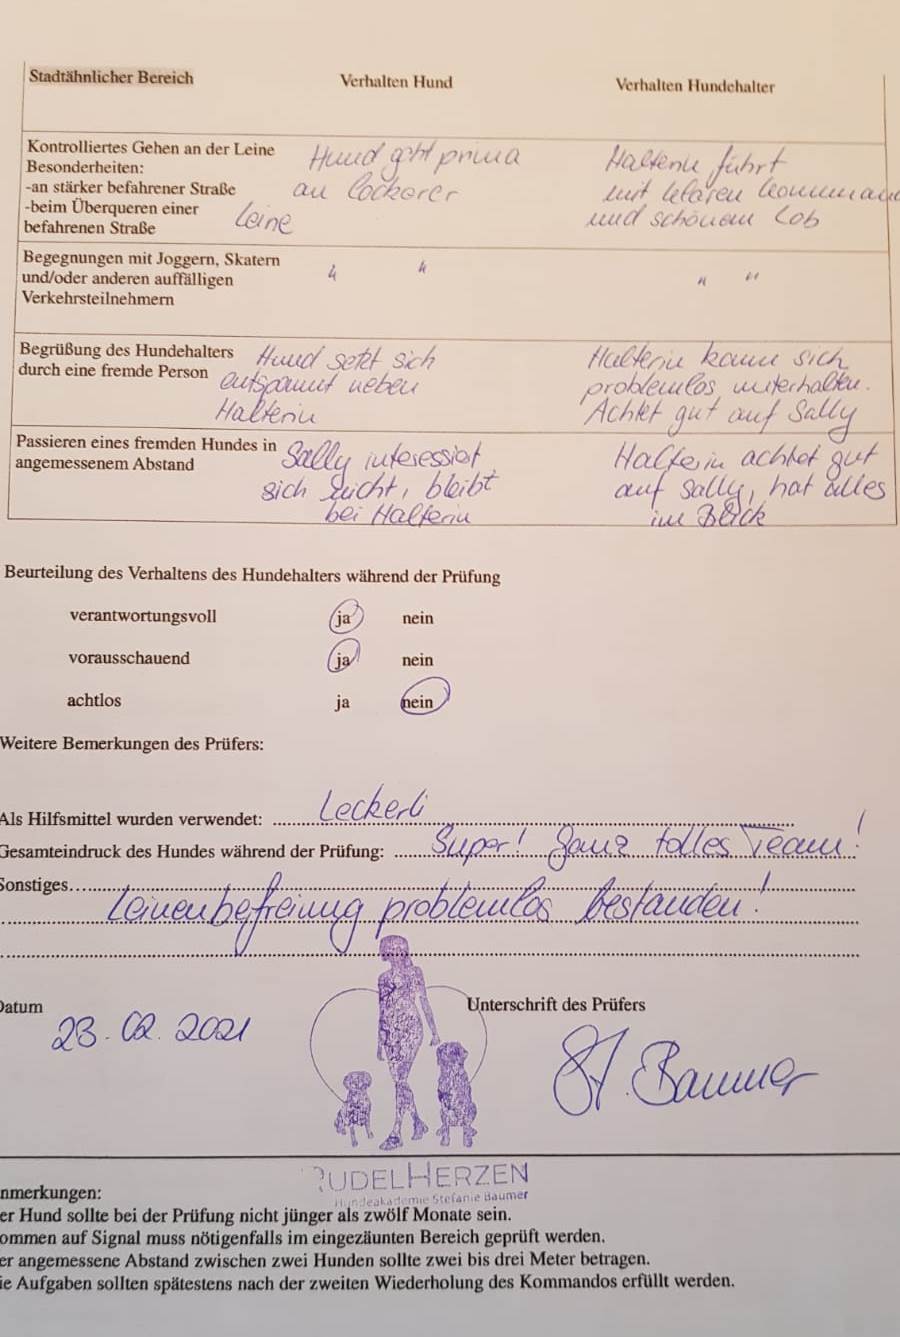 Stadtähnlicher Bereich Verhalten Hund Verhalten Hundehalter
Kontrolliertes Gehen an der Leine
Besonderheiten:
-an stärker befahrener Straße
-beim Überqueren einer
befahrenen Straße
Hund geht prima
an lockerer
Leine
Halterin führt
mit klaren Kommand
und schönem Lob
Begegnungen mit Joggern, Skatern
und/oder anderen auffälligen
Verkehrsteilnehmern
" "
" "
Begrüßung des Hundehalters
durch eine fremde Person
Hund setzt sich
entspannt neben
Halterin
Halterin kann sich
problemlos unterhalten.
Achtet gut auf Sally
Passieren eines fremden Hundes in
angemessenem Abstand
Sally interessiert
sich leicht, bleibt
bei Halterin
Halterin achtet gut
auf Sally, hat alles
im Blick
Beurteilung des Verhaltens des Hundehalters während der Prüfung
verantwortungsvoll ja nein
vorausschauend ja nein
achtlos ja nein
Weitere Bemerkungen des Prüfers:
Als Hilfsmittel wurden verwendet: Leckerli
Gesamteindruck des Hundes während der Prüfung: Super! Ganz tolles Team!
Sonstiges
Leinenbefreiung problemlos bestanden!
Datum Unterschrift des Prüfers
23.02.2021 St. Baumer
RUDELHERZEN
Hundeakademie Stefanie Baumer
nmerkungen:
er Hund sollte bei der Prüfung nicht jünger als zwölf Monate sein.
ommen auf Signal muss nötigenfalls im eingezäunten Bereich geprüft werden.
er angemessene Abstand zwischen zwei Hunden sollte zwei bis drei Meter betragen.
ie Aufgaben sollten spätestens nach der zweiten Wiederholung des Kommandos erfüllt werden.